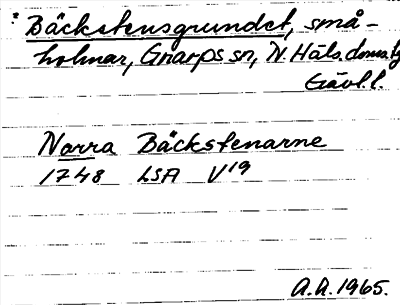 * Bäckstensgrundet, små-
holmar, Gnarps sn, N. Häls. domsg
Gävl. l.
Norra Bäckstenarne
1748 LSA V19
A.A. 1965.